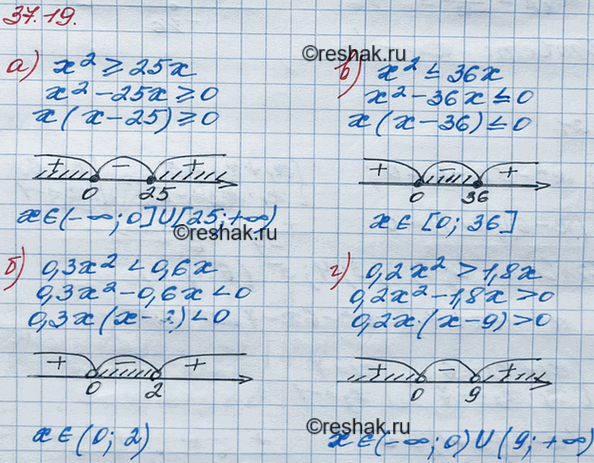 37.19.
©reshak.ru
а) x² ≥ 25x
x² - 25x ≥ 0
x(x-25) ≥ 0
+ - +
0 25
x ∈ (-∞; 0] U [25; +∞)
©reshak.ru
в) x² ≤ 36x
x² - 36x ≤ 0
x(x-36) ≤ 0
+ - +
0 36
x ∈ [0; 36]
б) 0,3x² < 0,6x
0,3x² - 0,6x < 0
0,3x(x - 2) < 0
+ - +
0 2
x ∈ (0; 2)
г) 0,2x² > 1,8x
0,2x² - 1,8x > 0
0,2x·(x-9) > 0
+ - +
0 9
x ∈ (-∞; 0) U (9; +∞)
©reshak.ru